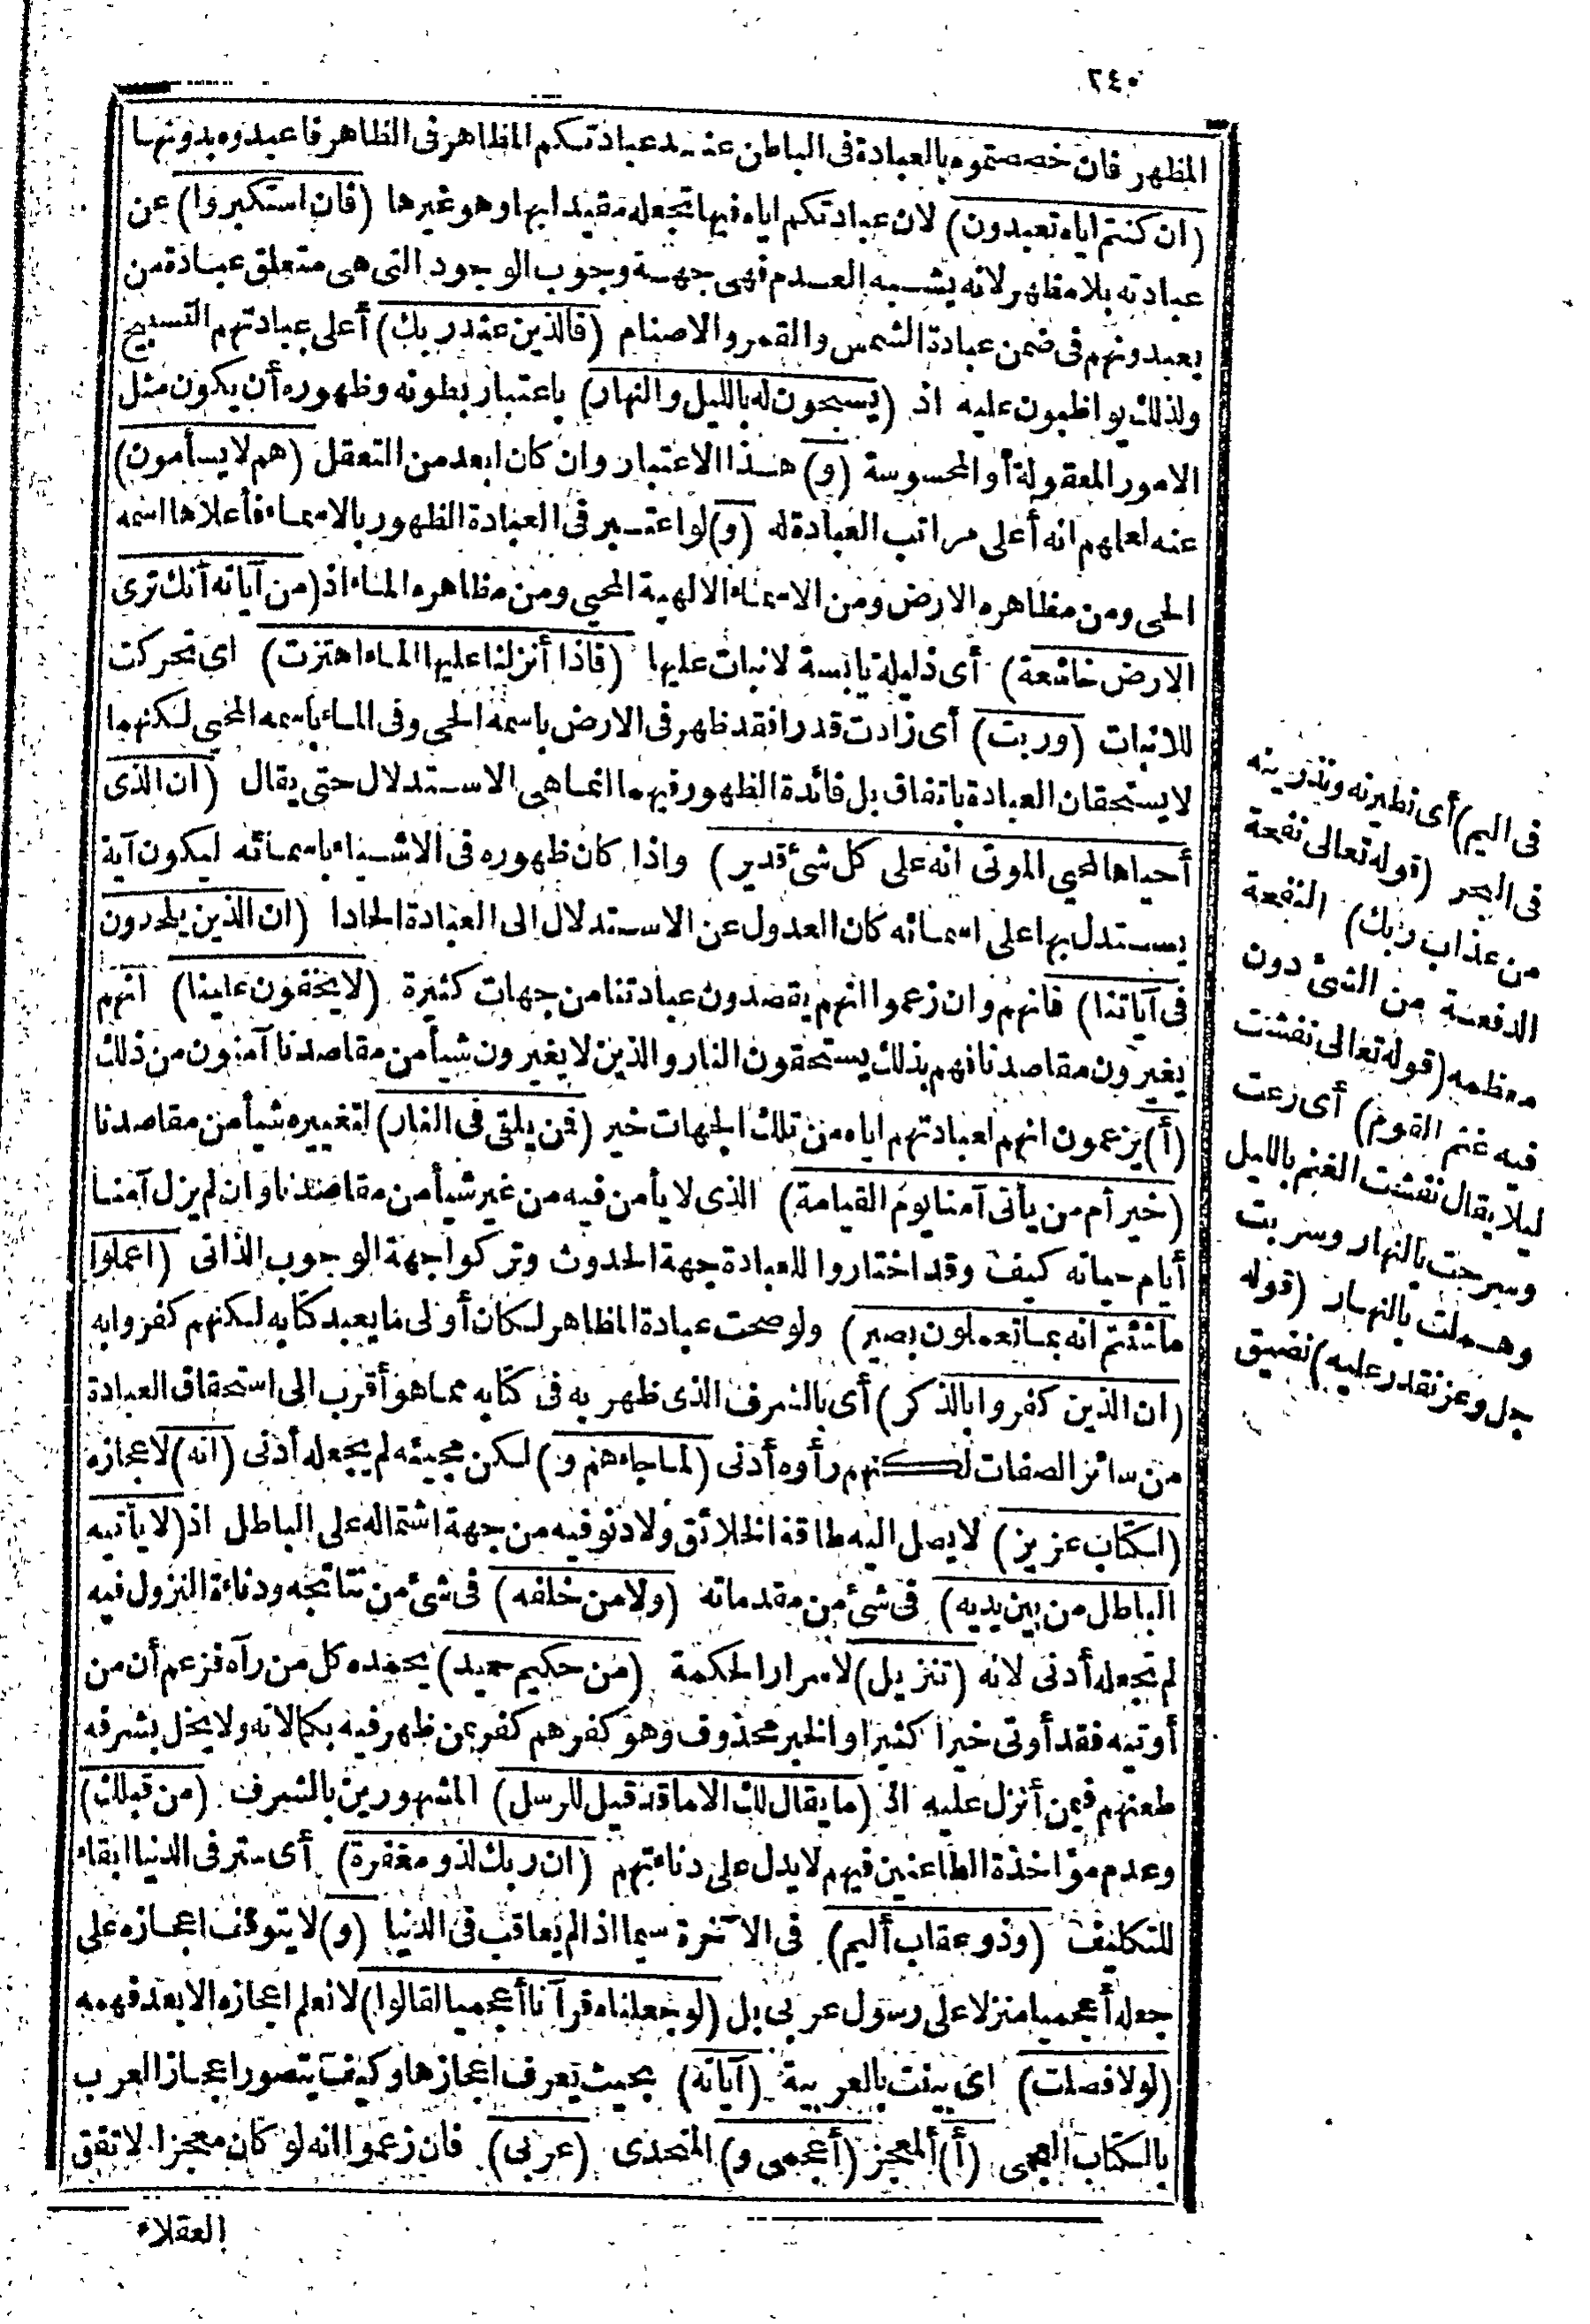 ٢٤٠
المظهر فان خصصتموه بالعبادة فى الباطن عند عبادتكم المظاهر فى الظاهر فاعبدوه بدونها
(ان كنتم اياه تعبدون) لان عبادتكم اياه فيها تجعله مقيدا بها وهو غيرها (فان استكبروا) عن
عبادته بلا مظاهر لانه يشبه العدم فهى جهة وجوب الوجود التى هى متعلق عبادة من
يعبدونهم فى ضمن عبادة الشمس والقمر والاصنام (فالذين عند ربك) أعلى عبادتهم التسبيح
ولذلك يواظبون عليه اذ (يسبحون له بالليل والنهار) باعتبار بطونه وظهوره أن يكون مثل
الامور المعقولة أو المحسوسة (و) هذا الاعتبار وان كان ابعد من التعقل (هم لا يسأمون)
عنه لعلمهم انه أعلى مراتب العبادة له (و) لو اعتبر فى العبادة الظهور بالاسماء فأعلاها اسمه
الحى ومن مظاهره الارض ومن الاسماء الالهية المحيى ومن مظاهره الماء اذ (من آياته أنك ترى
الارض خاشعة) أى ذليلة يابسة لا نبات عليها (فاذا أنزلنا عليها الماء اهتزت) اى تحركت
للانبات (وربت) أى زادت قدرا فقد ظهر فى الارض باسمه الحى وفى الماء باسمه المحيى لكنهما
لا يستحقان العبادة باتفاق بل فائدة الظهور فيهما انما هى الاستدلال حتى يقال (ان الذى
أحياها لمحيى الموتى انه على كل شئ قدير) واذا كان ظهوره فى الاشياء باسمائه ليكون آية
يستدل بها على اسمائه كان العدول عن الاستدلال الى العبادة الحادا (ان الذين يلحدون
فى آياتنا) فانهم وان زعموا انهم يقصدون عبادتنا من جهات كثيرة (لا يخفون علينا) انهم
يغيرون مقاصدنا فهم بذلك يستحقون النار والذين لا يغيرون شيأ من مقاصدنا آمنون من ذلك
(أ) يزعمون انهم لعبادتهم اياه من تلك الجهات خير (فمن يلقى فى النار) لتغييره شيأ من مقاصدنا
(خير أم من يأتى آمنا يوم القيامة) الذى لا يأمن فيه من غير شيأ من مقاصدنا وان لم يزل آمنا
أيام حياته كيف وقد اختاروا للعبادة جهة الحدوث وتركوا جهة الوجوب الذاتى (اعملوا
ما شئتم انه بما تعملون بصير) ولو صحت عبادة المظاهر لكان أولى ما يعبد كتابه لكنهم كفروا به
(ان الذين كفروا بالذكر) أى بالشرف الذى ظهر به فى كتابه مما هو أقرب الى استحقاق العبادة
من سائر الصفات لكنهم رأوه أدنى (لما جاءهم و) لكن مجيئه لم يجعله أدنى (انه) لاعجازه
(لكتاب عزيز) لا يصل اليه طاقة الخلائق ولا دنو فيه من جهة اشتماله على الباطل اذ (لا يأتيه
الباطل من بين يديه) فى شئ من مقدماته (ولا من خلفه) فى شئ من نتائجه ودناءة النزول فيه
لم تجعله أدنى لانه (تنزيل) لاسرار الحكمة (من حكيم حميد) يحمده كل من رآه فزعم أن من
أوتيه فقد أوتى خيرا كثيرا والخبر محذوف وهو كفرهم كفر بمن ظهر فيه بكمالاته ولا يخل بشرفه
طعنهم فيمن أنزل عليه اذ (ما يقال لك الا ما قد قيل للرسل) المشهورين بالشرف (من قبلك)
وعدم مؤاخذة الطاعنين فيهم لا يدل على دناءتهم (ان ربك لذو مغفرة) أى ستر فى الدنيا ابقاء
للتكليف (وذو عقاب أليم) فى الآخرة سيما اذا لم يعاقب فى الدنيا (و) لا يتوقف اعجازه على
جعله أعجميا منزلا على رسول عربى بل (لو جعلناه قرآنا أعجميا لقالوا) لا نعلم اعجازه الا بعد فهمه
(لولا فصلت) اى بينت بالعربية (آياته) بحيث يعرف اعجازها وكيف يتصور اعجاز العرب
بالكتاب العجمى (أ) المعجز (أعجمى و) المتحدى (عربى) فان زعموا انه لو كان معجزا لاتفق
العقلاء
فى اليم) أى نطيرنه ونذرينه
فى البحر (قوله تعالى نفحة
من عذاب ربك) النفحة
الدفعة من الشئ دون
معظمه (قوله تعالى نفشت
فيه غنم القوم) أى رعت
ليلا يقال نفشت الغنم بالليل
وسرحت بالنهار وسربت
وهملت بالنهار (قوله
جل وعز نقدر عليه) نضيق